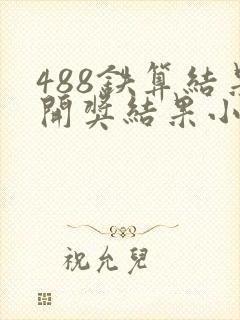 488鉄算結果
開獎結果小
祝允兒